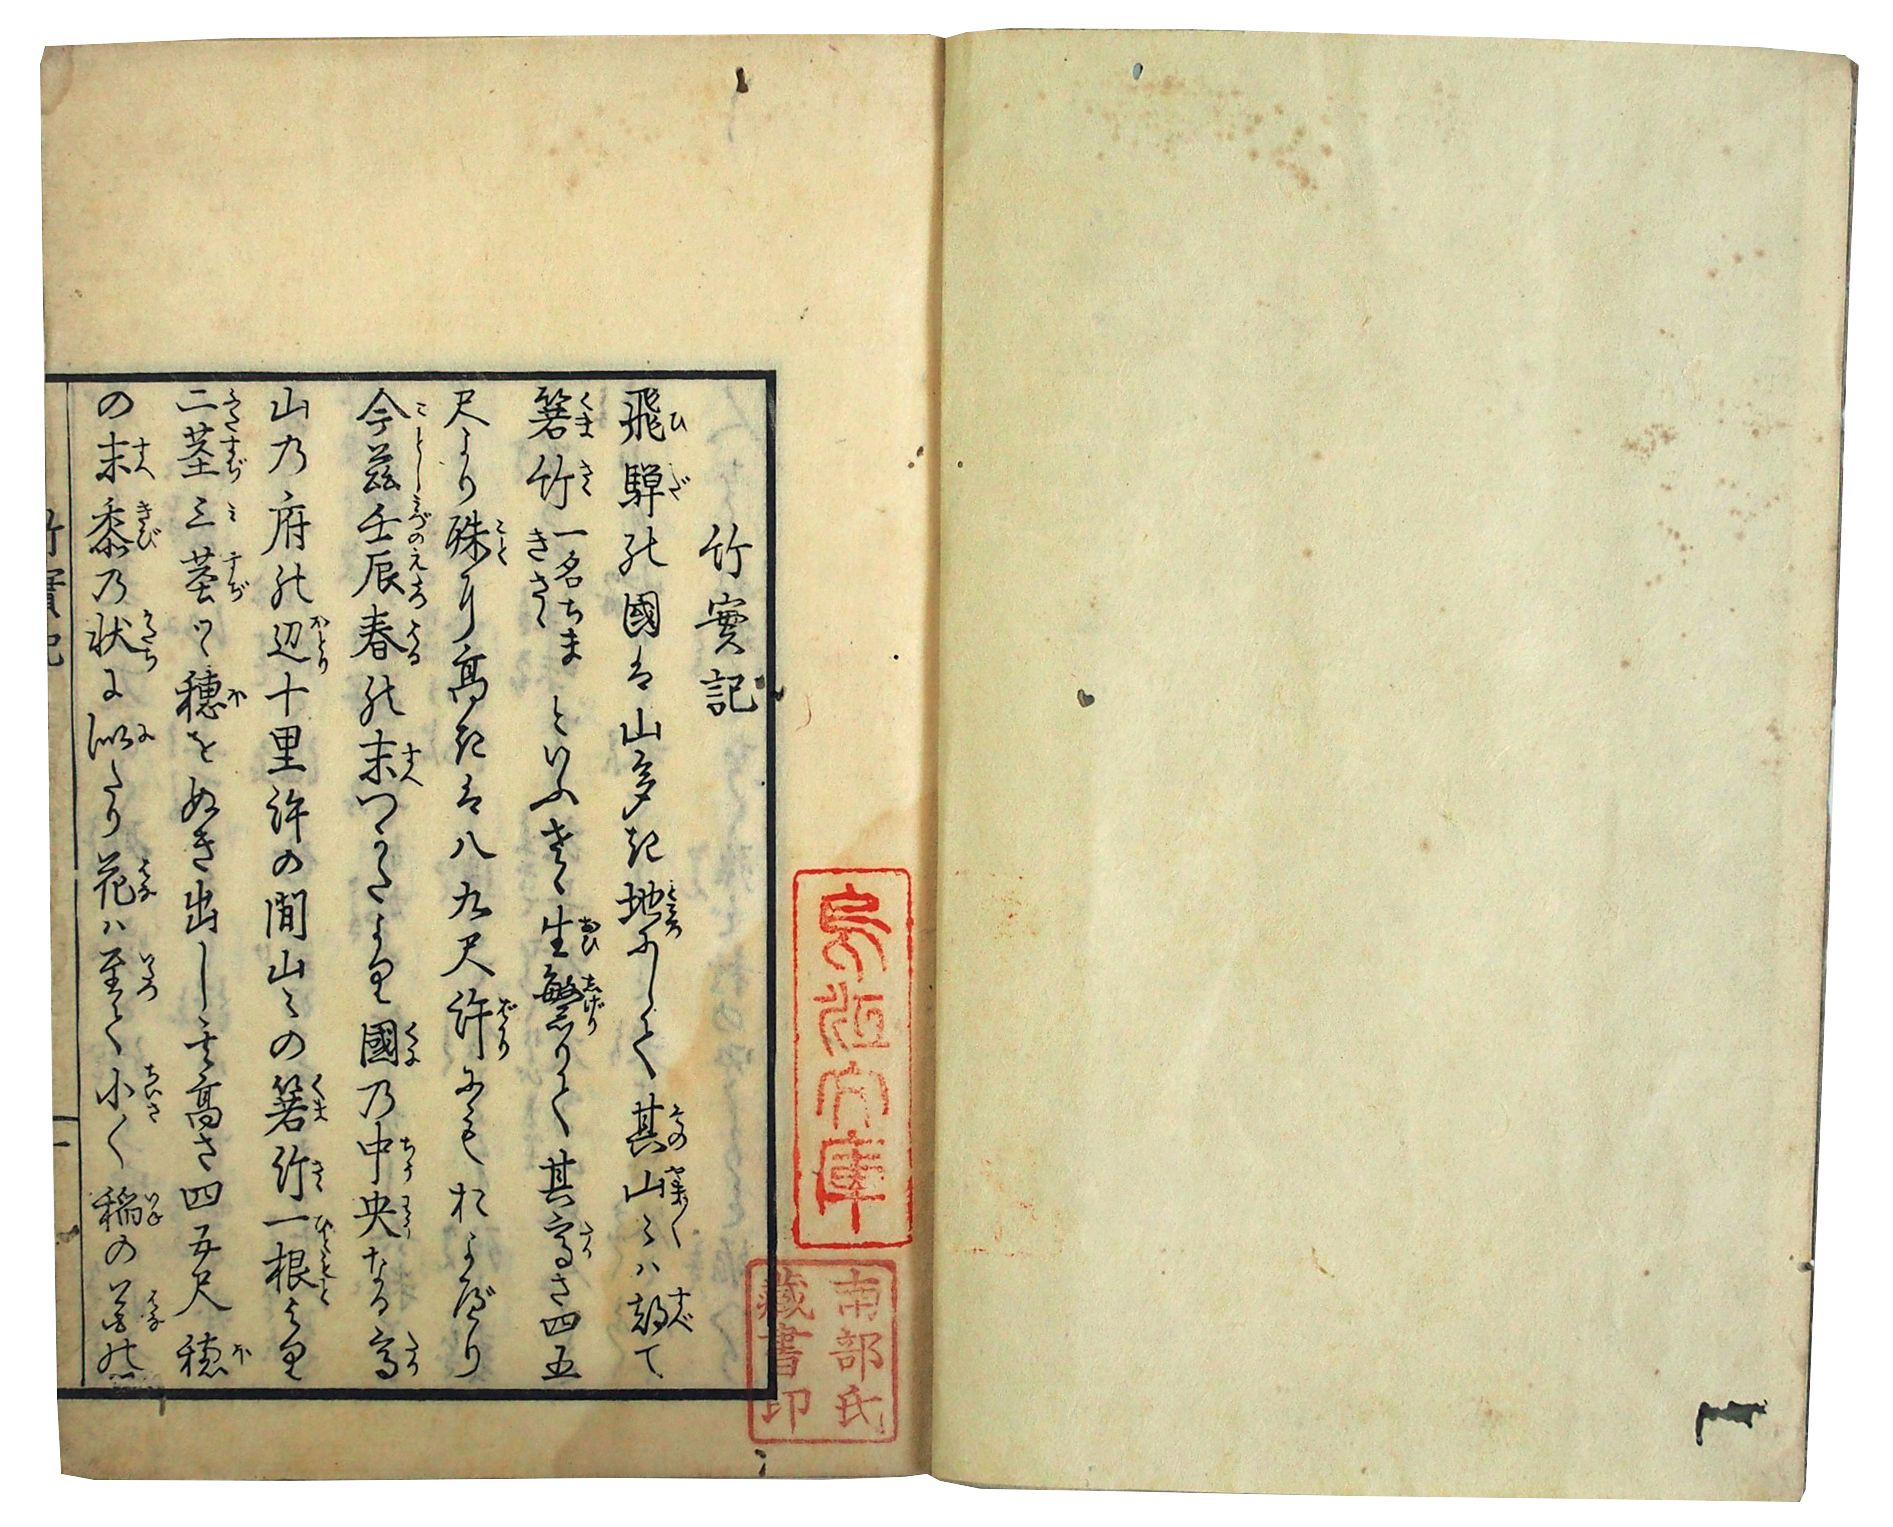 竹實記
飛騨の國は山多き地にして其山々ハ都て
箬竹一名ちまきざゝといふさゝ生繁りて其高さ四五
尺より殊に高きは八九尺許にもおよべり
今茲壬辰春の末つかたより國乃中央なる高
山乃府の辺十里許の間山々の箬竹一根より
二茎三茎ツヽ穂をぬき出し其高さ四五尺穂
の末黍乃状に似たり花ハ至て小く稲の花の
竹實記
一
文庫
南部氏
藏書印